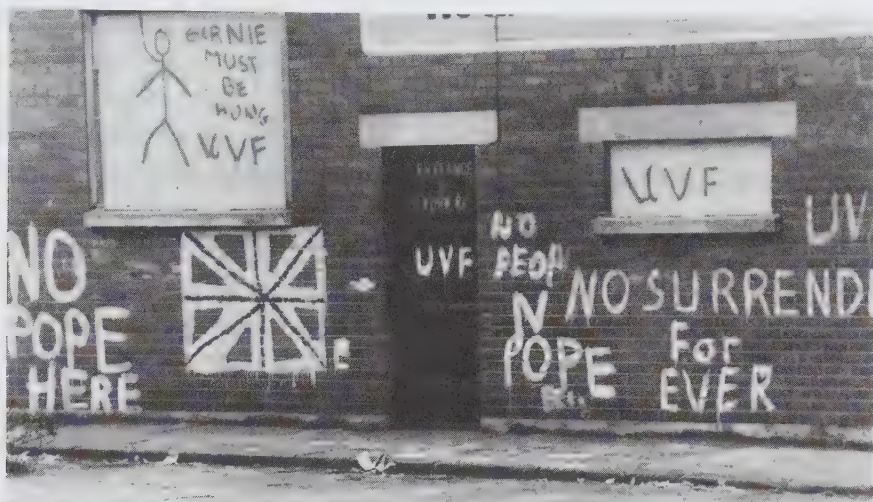 GERNIE
MUST
BE
HUNG
UVF
NO
POPE
HERE
UVF
NO
PEOP
N
POPE
UVF
NO SURREND
For
EVER
UV